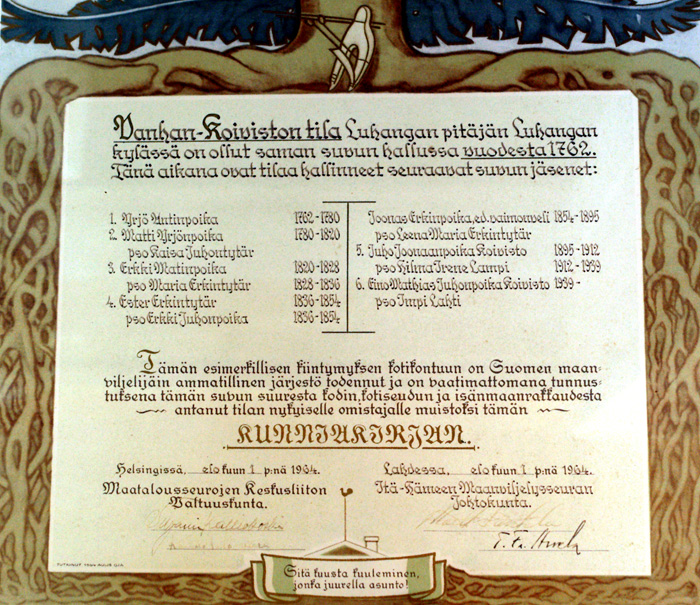 Vanhan-Koiviston tila Luhangan pitäjän Luhangan
kylässä on ollut saman suvun hallussa vuodesta 1762.
Tänä aikana ovat tilaa hallinneet seuraavat suvun jäsenet:
1. Yrjö Antinpoika 1762-1780
2. Matti Yrjönpoika 1780-1820
pso Kaisa Juhontytär
3. Erkki Matinpoika 1820-1828
pso Maria Erkintytär 1828-1836
4. Ester Erkintytär 1836-1854
pso Erkki Juhonpoika 1836-1854
Joonas Erkinpoika, ed. vaimonveli 1854-1895
pso Leena Maria Erkintytär
5. Juho Joonaanpoika Koivisto 1895-1912
pso Hilma Irene Lampi 1912-1939
6. Eino Mathias Juhonpoika Koivisto 1939-
pso Impi Lahti
Tämän esimerkillisen kiintymyksen kotikontuun on Suomen maan-
viljelijäin ammatillinen järjestö todennut ja on vaatimattomana tunnus-
tuksena tämän suvun suuresta kodin, kotiseudun ja isänmaanrakkaudesta
antanut tilan nykyiselle omistajalle muistoksi tämän
KUNNIAKIRJAN.
Helsingissä, elokuun 1 p:nä 1964.
Maatalousseurojen Keskusliiton
Valtuuskunta.
Lahdessa, elokuun 1 p:nä 1964.
Itä-Hämeen Maanviljelysseuran
Johtokunta.
Sitä kuusta kuuleminen,
jonka juurella asunto!